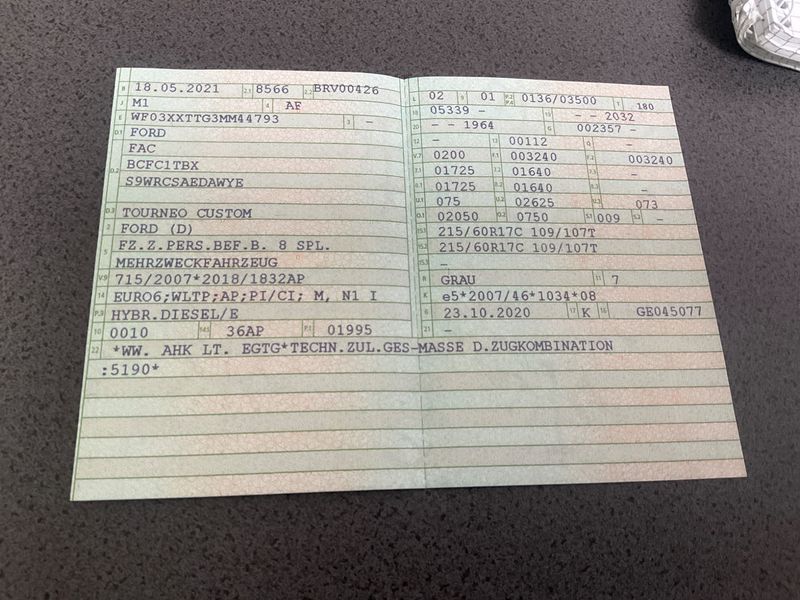 B 18.05.2021 2.1 8566 2.2 BRV00426
J M1 4 AF
E WF03XXTTG3MM44793 3 -
D.1 FORD
FAC
D.2 BCFC1TBX
S9WRCSAEDAWYE
D.3 TOURNEO CUSTOM
2 FORD (D)
5 FZ.Z.PERS.BEF.B. 8 SPL.
MEHRZWECKFAHRZEUG
V.9 715/2007*2018/1832AP
14 EURO6;WLTP;AP;PI/CI; M, N1 I
P.3 HYBR.DIESEL/E
10 0010 14.1 36AP P.1 01995
22 *WW. AHK LT. EGTG*TECHN.ZUL.GES-MASSE D.ZUGKOMBINATION
:5190*
L 02 9 01 P.2 P.4 0136/03500 T 180
18 05339 - 19 - - 2032
20 - - 1964 G 002357 -
12 - 13 00112 Q -
V.7 0200 F.1 003240 F.2 003240
7.1 01725 7.2 01640 7.3 -
8.1 01725 8.2 01640 8.3 -
U.1 075 U.2 02625 U.3 073
O.1 02050 O.2 0750 S.1 009 S.2 -
15.1 215/60R17C 109/107T
15.2 215/60R17C 109/107T
15.3 -
R GRAU 11 7
K e5*2007/46*1034*08
6 23.10.2020 17 K 16 GE045077
21 -